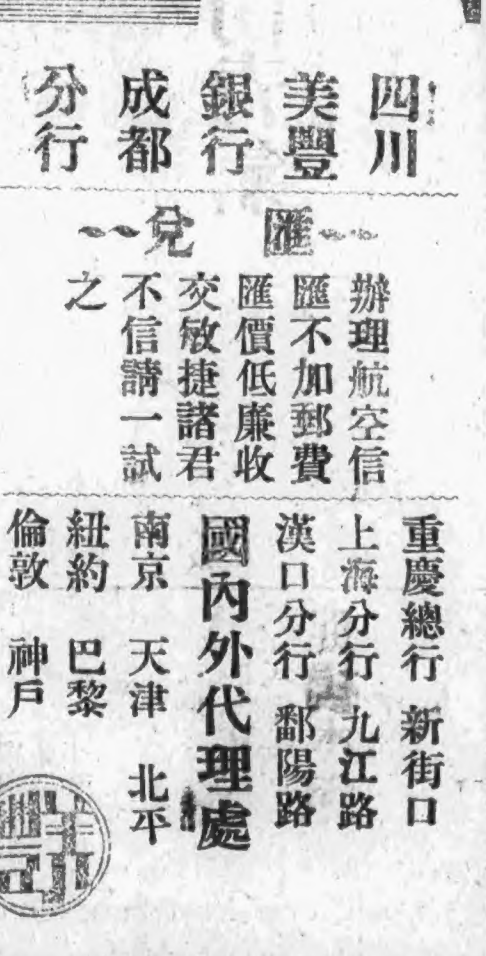 四川
美豐
銀行
成都
分行
匯兌
辦理航空信
匯不加郵費
匯價低廉收
交敏捷諸君
不信請一試
之
重慶總行 新街口
上海分行 九江路
漢口分行 鄱陽路
國內外代理處
南京 天津 北平
紐約 巴黎
倫敦 神戶